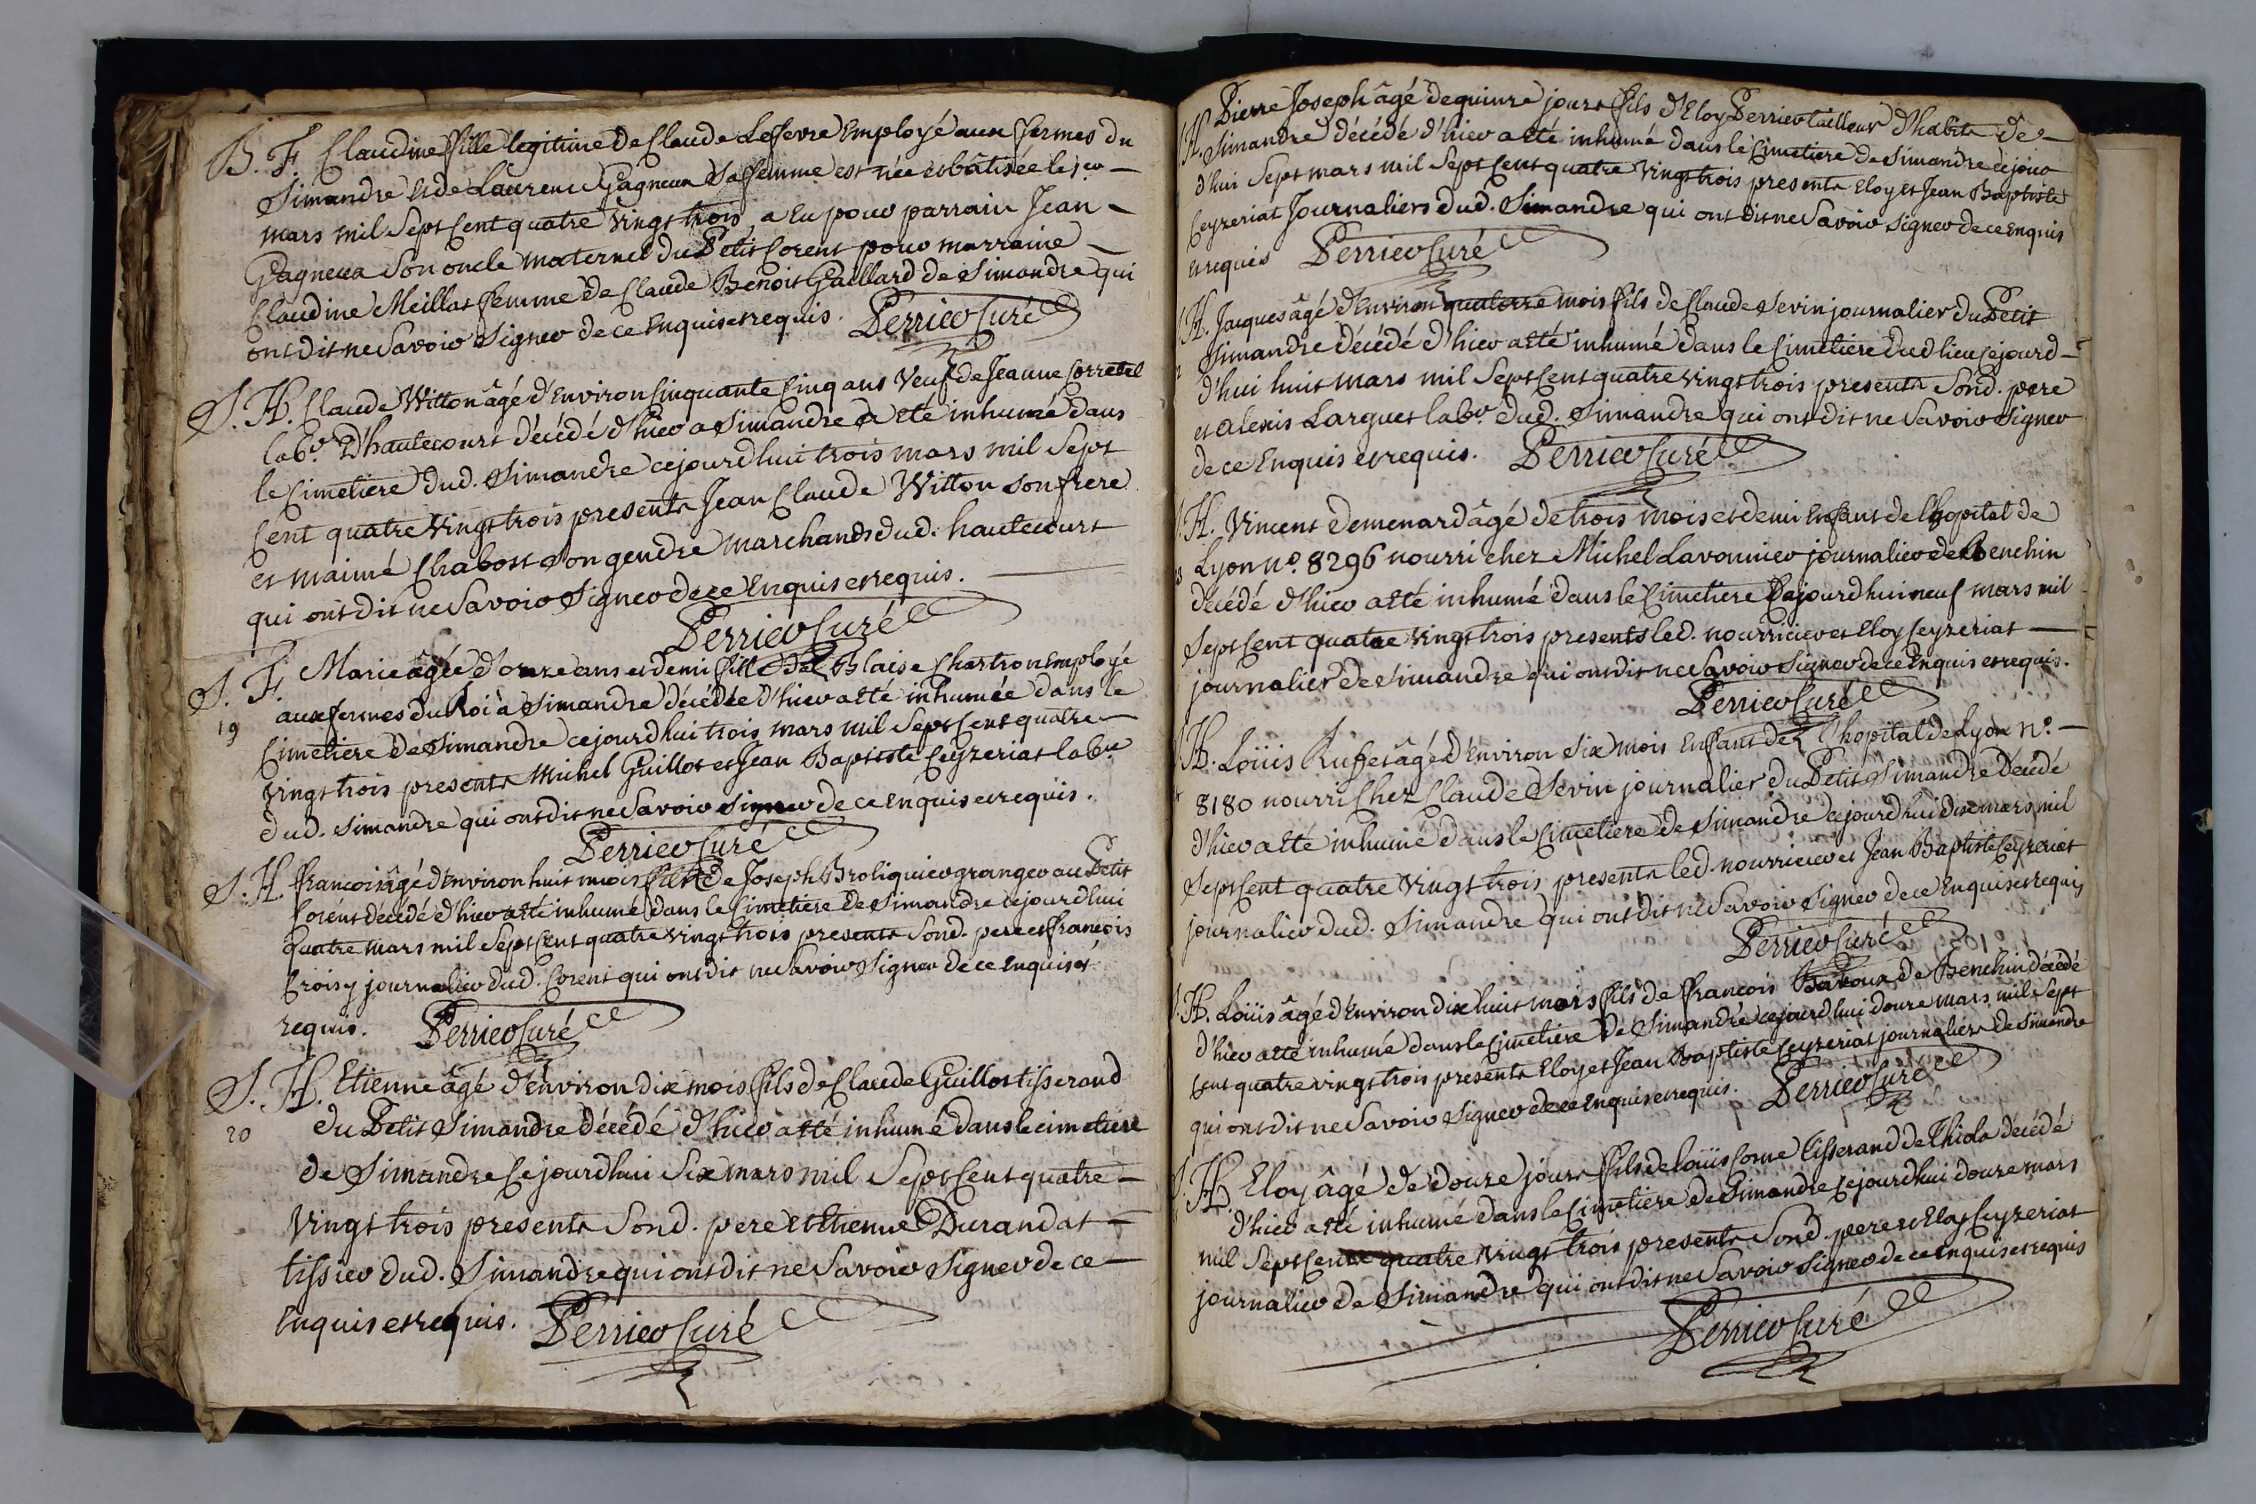 B. F. Claudine fille legitime de Claude Lefevre Employé aux fermes du
Simandre et de Laurence Gagneux Sa femme est née et bâtisée le 1er
mars mil Sept Cent quatre vingt trois a eu pour parrain Jean
Gagneux Son oncle maternel du Petit Corent pour marraine
Claudine Meillat femme de Claude Benoit Gaillard de Simandre qui
ont dit ne Savoir Signer de ce Enquis et requis. Perrier Curé
S. H. Claude Witton âgé d'Environ Cinquante Cinq ans Veuf de Jeanne Corretel
labr. D'hautecourt décédé d'hier a Simandre a été inhumé dans
le Cimetiere dud. Simandre cejourdhui trois mars mil Sept
Cent quatre vingt trois presents Jean Claude Witton Son frere
et maimé Chabost Son gendre marchands dud. hautecourt
qui ont dit ne Savoir Signer de ce Enquis et requis.
Perrier Curé
S. F. Marie âgée d'onze ans et demi fille de Blaise Chartron Employé
19 aux fermes du Roi à Simandre décédée d'hier a été inhumée dans le
Cimetiere de Simandre cejourdhui trois mars mil Sept Cent quatre
vingt trois presents Michel Guillot et Jean Baptiste Ceyzeriat labrs
dud. Simandre qui ont dit ne Savoir Signer de ce Enquis et requis.
Perrier Curé
S. H. francois âgé d'Environ huit mois fils de Joseph Broliquier granger au Petit
Corent décédé d'hier a été inhumé dans le Cimetiere de Simandre cejourdhui
quatre mars mil Sept Cent quatre vingt trois presents Sond. pere et francois
Croisy journalier dud. Corent qui ont dit ne Savoir Signer de ce Enquis et
requis. Perrier Curé
S. H. Etienne âgé d'Environ dix mois fils de Claude Guillot tisserand
20 du Petit Simandre décédé d'hier a été inhumé dans le cimetiere
de Simandre Cejourdhui Six mars mil Sept Cent quatre
vingt trois presents Sond. pere et Etienne Durandat
tissier dud. Simandre qui ont dit ne Savoir Signer de ce
Enquis et requis. Perrier Curé
H. Pierre Joseph âgé de quinze jours fils d'Eloy Perrier tailleur d'habits de
Simandre décédé d'hier a été inhumé dans le Cimetiere de Simandre cejour
d'hui Sept mars mil Sept Cent quatre vingt trois presents Eloy et Jean Baptiste
Ceyzeriat Journaliers dud. Simandre qui ont dit ne Savoir Signer de ce Enquis
et requis Perrier Curé
H. Jacques âgé d'Environ quatorze mois fils de Claude Sevin journalier du Petit
Simandre décédé d'hier a été inhumé dans le Cimetiere dud lieu cejourd
d'hui huit mars mil Sept Cent quatre vingt trois presents Sond. pere
et Alexis Larguet labr. dud. Simandre qui ont dit ne Savoir Signer
de ce Enquis et requis. Perrier Curé
H. Vincent demenard âgé de trois mois et demi Enfant de l'hopital de
Lyon no. 8296 nourri chez Michel Lavonnier journalier de Benchin
décédé d'hier a été inhumé dans le Cimetiere Cejourdhui neuf mars mil
Sept Cent quatre vingt trois presents led. nourricier et Eloy Ceyzeriat
journalier de Simandre qui ont dit ne Savoir Signer de ce Enquis et requis.
Perrier Curé
H. Loüis Ruffet âgé d'Environ Six mois Enfant de l'hopital de Lyon no.
8180 nourri Chez Claude Sevin journalier du Petit Simandre décédé
d'hier a été inhumé dans le Cimetiere de Simandre cejourdhui dix mars mil
Sept Cent quatre vingt trois presents led. nourricier et Jean Baptiste Ceyzeriat
journalier dud. Simandre qui ont dit ne Savoir Signer de ce Enquis et requis
Perrier Curé
H. Loüis âgé d'Environ dix huit mois fils de francois de Benchin décédé
d'hier a été inhumé dans le Cimetiere de Simandre cejourdhui douze mars mil Sept
Cent quatre vingt trois presents Eloy et Jean Baptiste Ceyzeriat journaliers de Simandre
qui ont dit ne Savoir Signer de ce Enquis et requis. Perrier Curé
H. Eloy âgé de douze jours fils de loüis Come tisserand de Thiola décédé
d'hier a été inhumé dans le Cimetiere de Simandre Cejourdhui douze mars
mil Sept Cent quatre vingt trois presents Sond. pere et Eloy Ceyzeriat
journalier de Simandre qui ont dit ne Savoir Signer de ce Enquis et requis
Perrier Curé